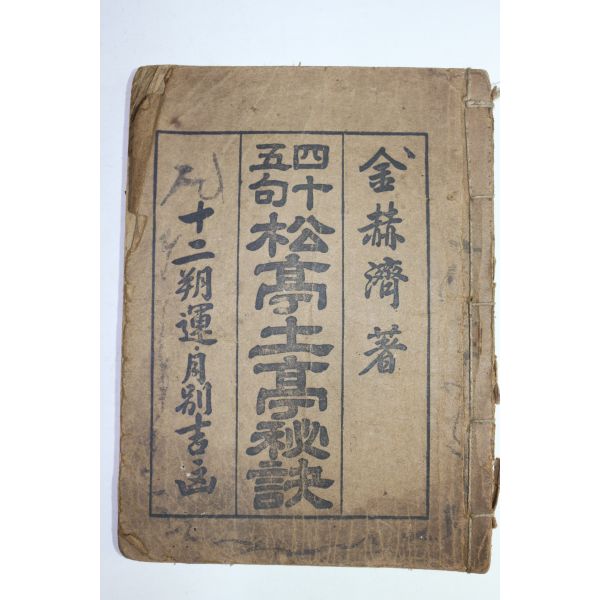 金赫濟 著
四十五句 松亭土亭秘訣
十二朔運·月別吉凶